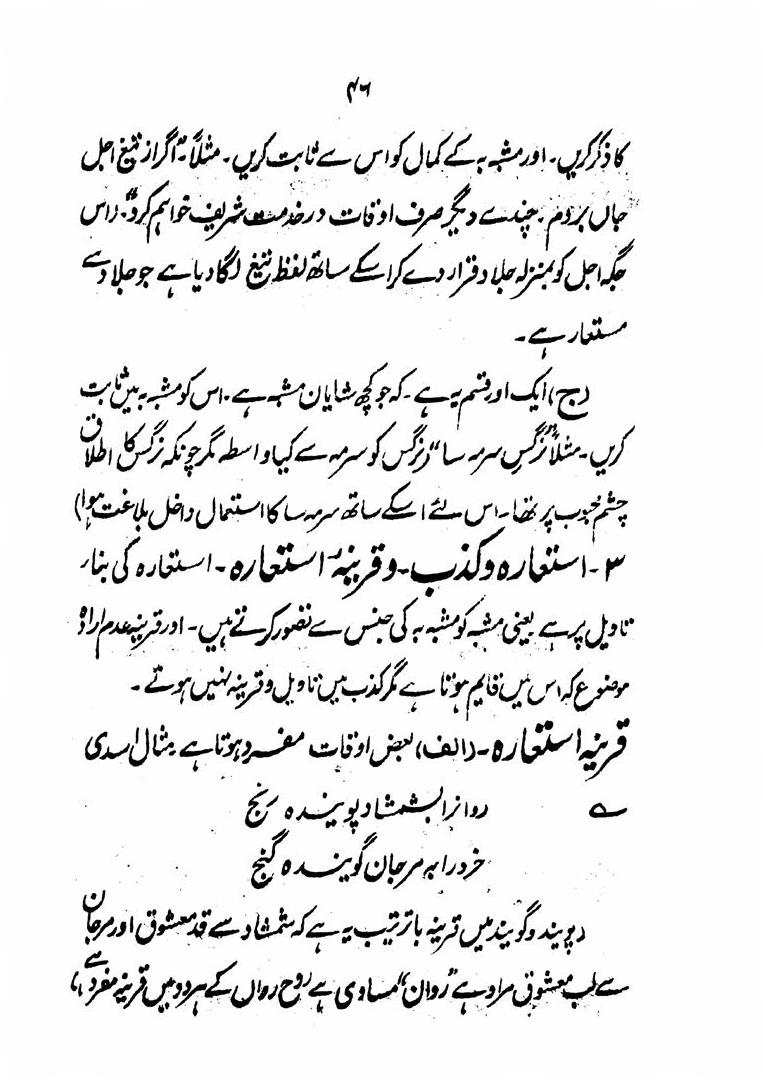 ۴۶
کا ذکر کریں۔ اور مشبہ بہ کے کمال کو اس سے ثابت کریں۔ مثلاً "اگر از تیغ اجل
جاں بردم۔ چندے دیگر صرف اوقات در خدمت شریف خواہم کرد"۔ (اس
جگہ اجل کو بمنزلہ جلاد قرار دے کر اسکے ساتھ لفظ تیغ لگا دیا ہے جو جلاد سے
مستعار ہے۔
(ج) ایک اور قسم یہ ہے۔ کہ جو کچھ شایان مشبہ ہے۔ اس کو مشبہ بہ میں ثابت
کریں۔ مثلاً "نرگس سرمہ سا" (نرگس کو سرمہ سے کیا واسطہ مگر چونکہ نرگس کا اطلاق
چشم محبوب پر تھا۔ اس لئے اسکے ساتھ سرمہ سا کا استعمال داخل بلاغت ہوا)
۳۔ استعارہ و کذب۔ و قرینۂ استعارہ۔ استعارہ کی بناء
تاویل پر ہے یعنی مشبہ کو مشبہ بہ کی جنس سے تصور کرتے ہیں۔ اور قرینہ عدم ارادہ
موضوع کہ اس میں قایم ہوتا ہے مگر کذب میں تاویل و قرینہ نہیں ہوتے۔
قرینہ استعارہ۔ (الف) بعض اوقات مفرد ہوتا ہے مثال اسدی
ے رواں را بشمشاد پویندہ رنج
خرد را بہ مرجان گویندہ گنج
(پویند و گویند میں قرینہ باترتیب یہ ہے کہ شمشاد سے قد معشوق اور مرجان
سے لب معشوق مراد ہے "روان" مساوی ہے روح رواں کے ہر دو میں قرینہ مفرد ہے)